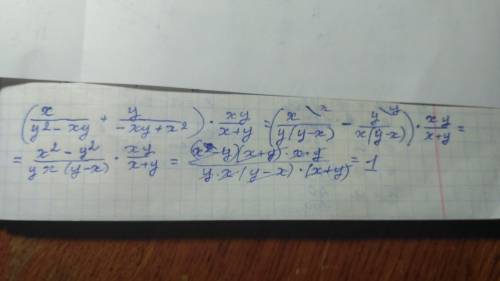 (x/(y²-xy) + y/(-xy+x²)) · xy/(x+y) = (x\x/(y(y-x)) - y\y/(x(y-x))) · xy/(x+y) =
= (x²-y²)/(yx(y-x)) · xy/(x+y) = ((x-y)(x+y)·x·y)/(y·x·(y-x)·(x+y)) = 1